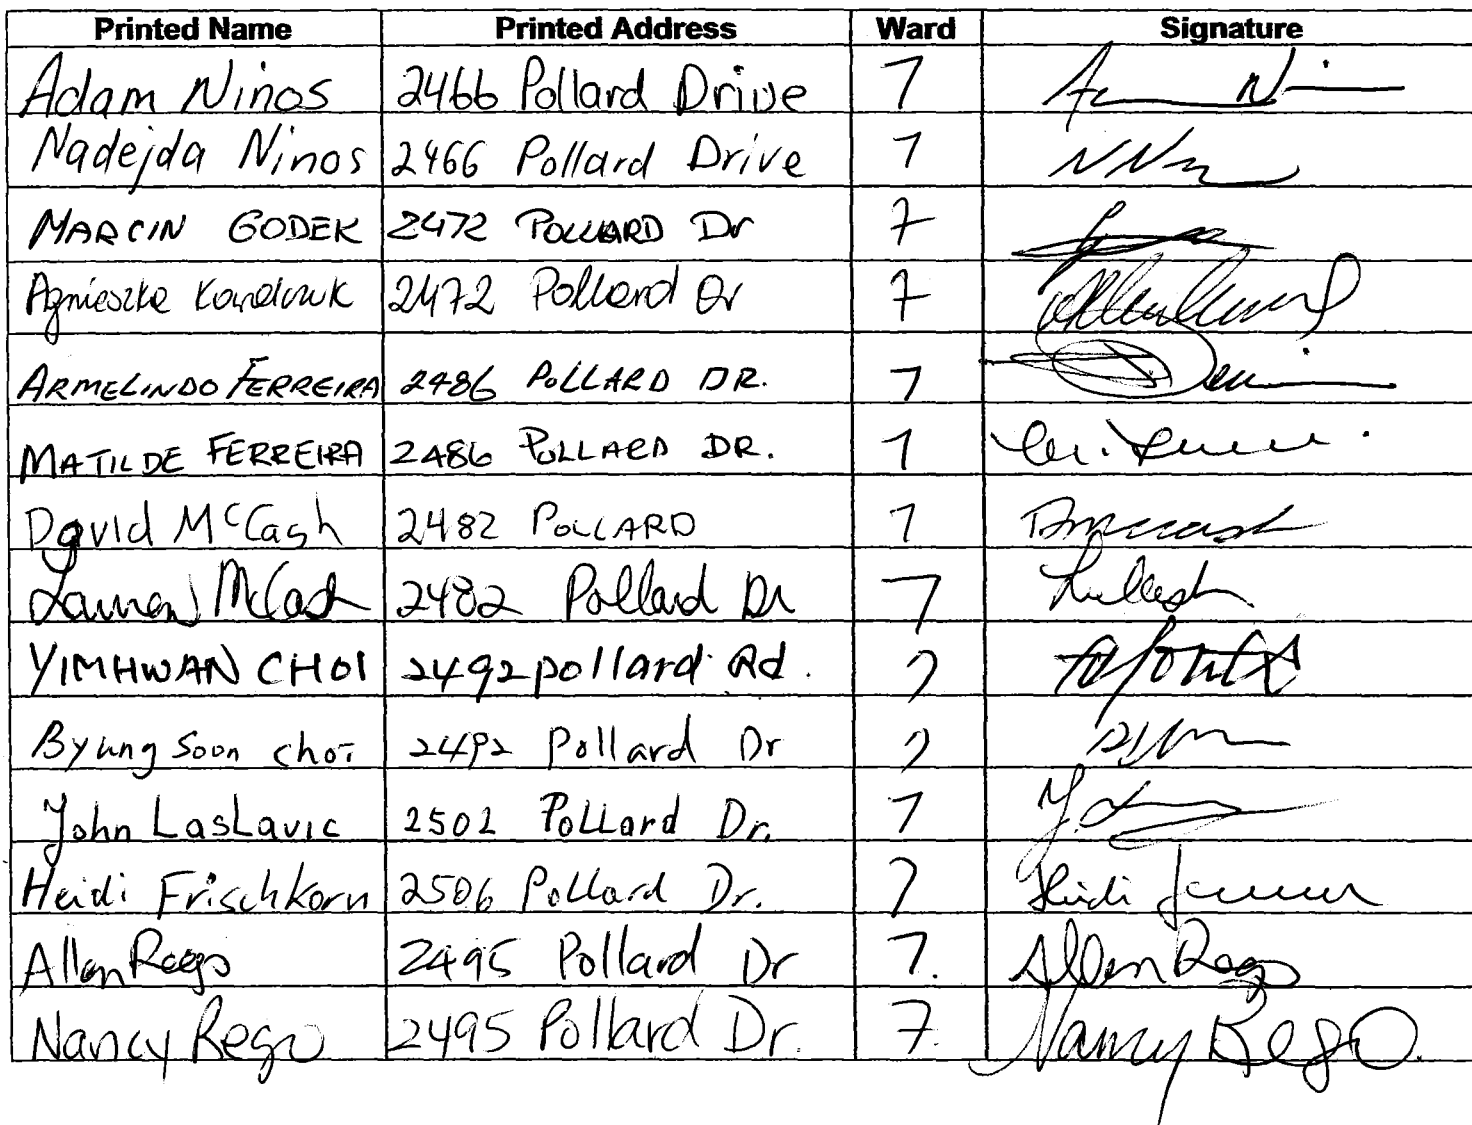 Printed Name Printed Address Ward Signature
Adam Ninos 2466 Pollard Drive 7
Nadejda Ninos 2466 Pollard Drive 7
MARCIN GODEK 2472 POLLARD Dr 7
Agnieszka 2472 Pollard Dr 7
ARMELINDO FERREIRA 2486 POLLARD DR. 7
MATILDE FERREIRA 2486 POLLARD DR. 7
David McCash 2482 POLLARD 7 DMccash
Lauren McCash 2482 Pollard Dr 7
YIMHWAN CHOI 2492 pollard Rd. 7
Byung Soon choi 2492 Pollard Dr 7
John LasLavic 2502 PoLLard Dr. 7
Heidi Frischkorn 2506 Pollard Dr. 7 Heidi
Allen Rego 2495 Pollard Dr 7. Allen Rego
Nancy Rego 2495 Pollard Dr. 7. Nancy Rego